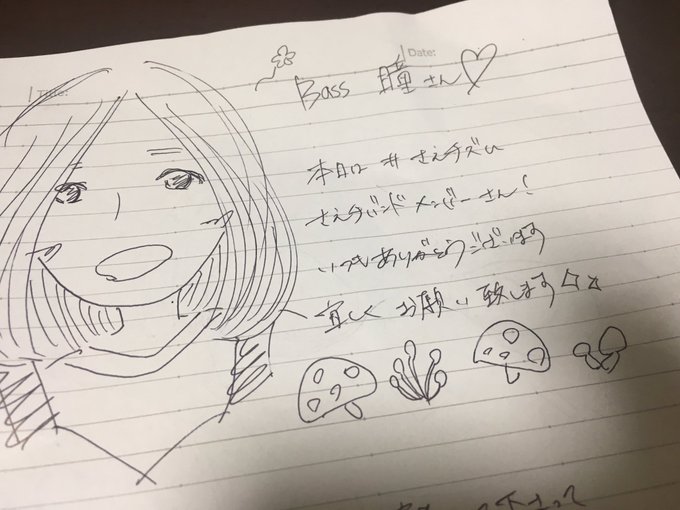 Title:
Date:
Bass 瞳さん♡
本日は #さえチズム
さえチバンド メンバーさん!
いつもありがとうございます
宜しく お願い致します☆☆